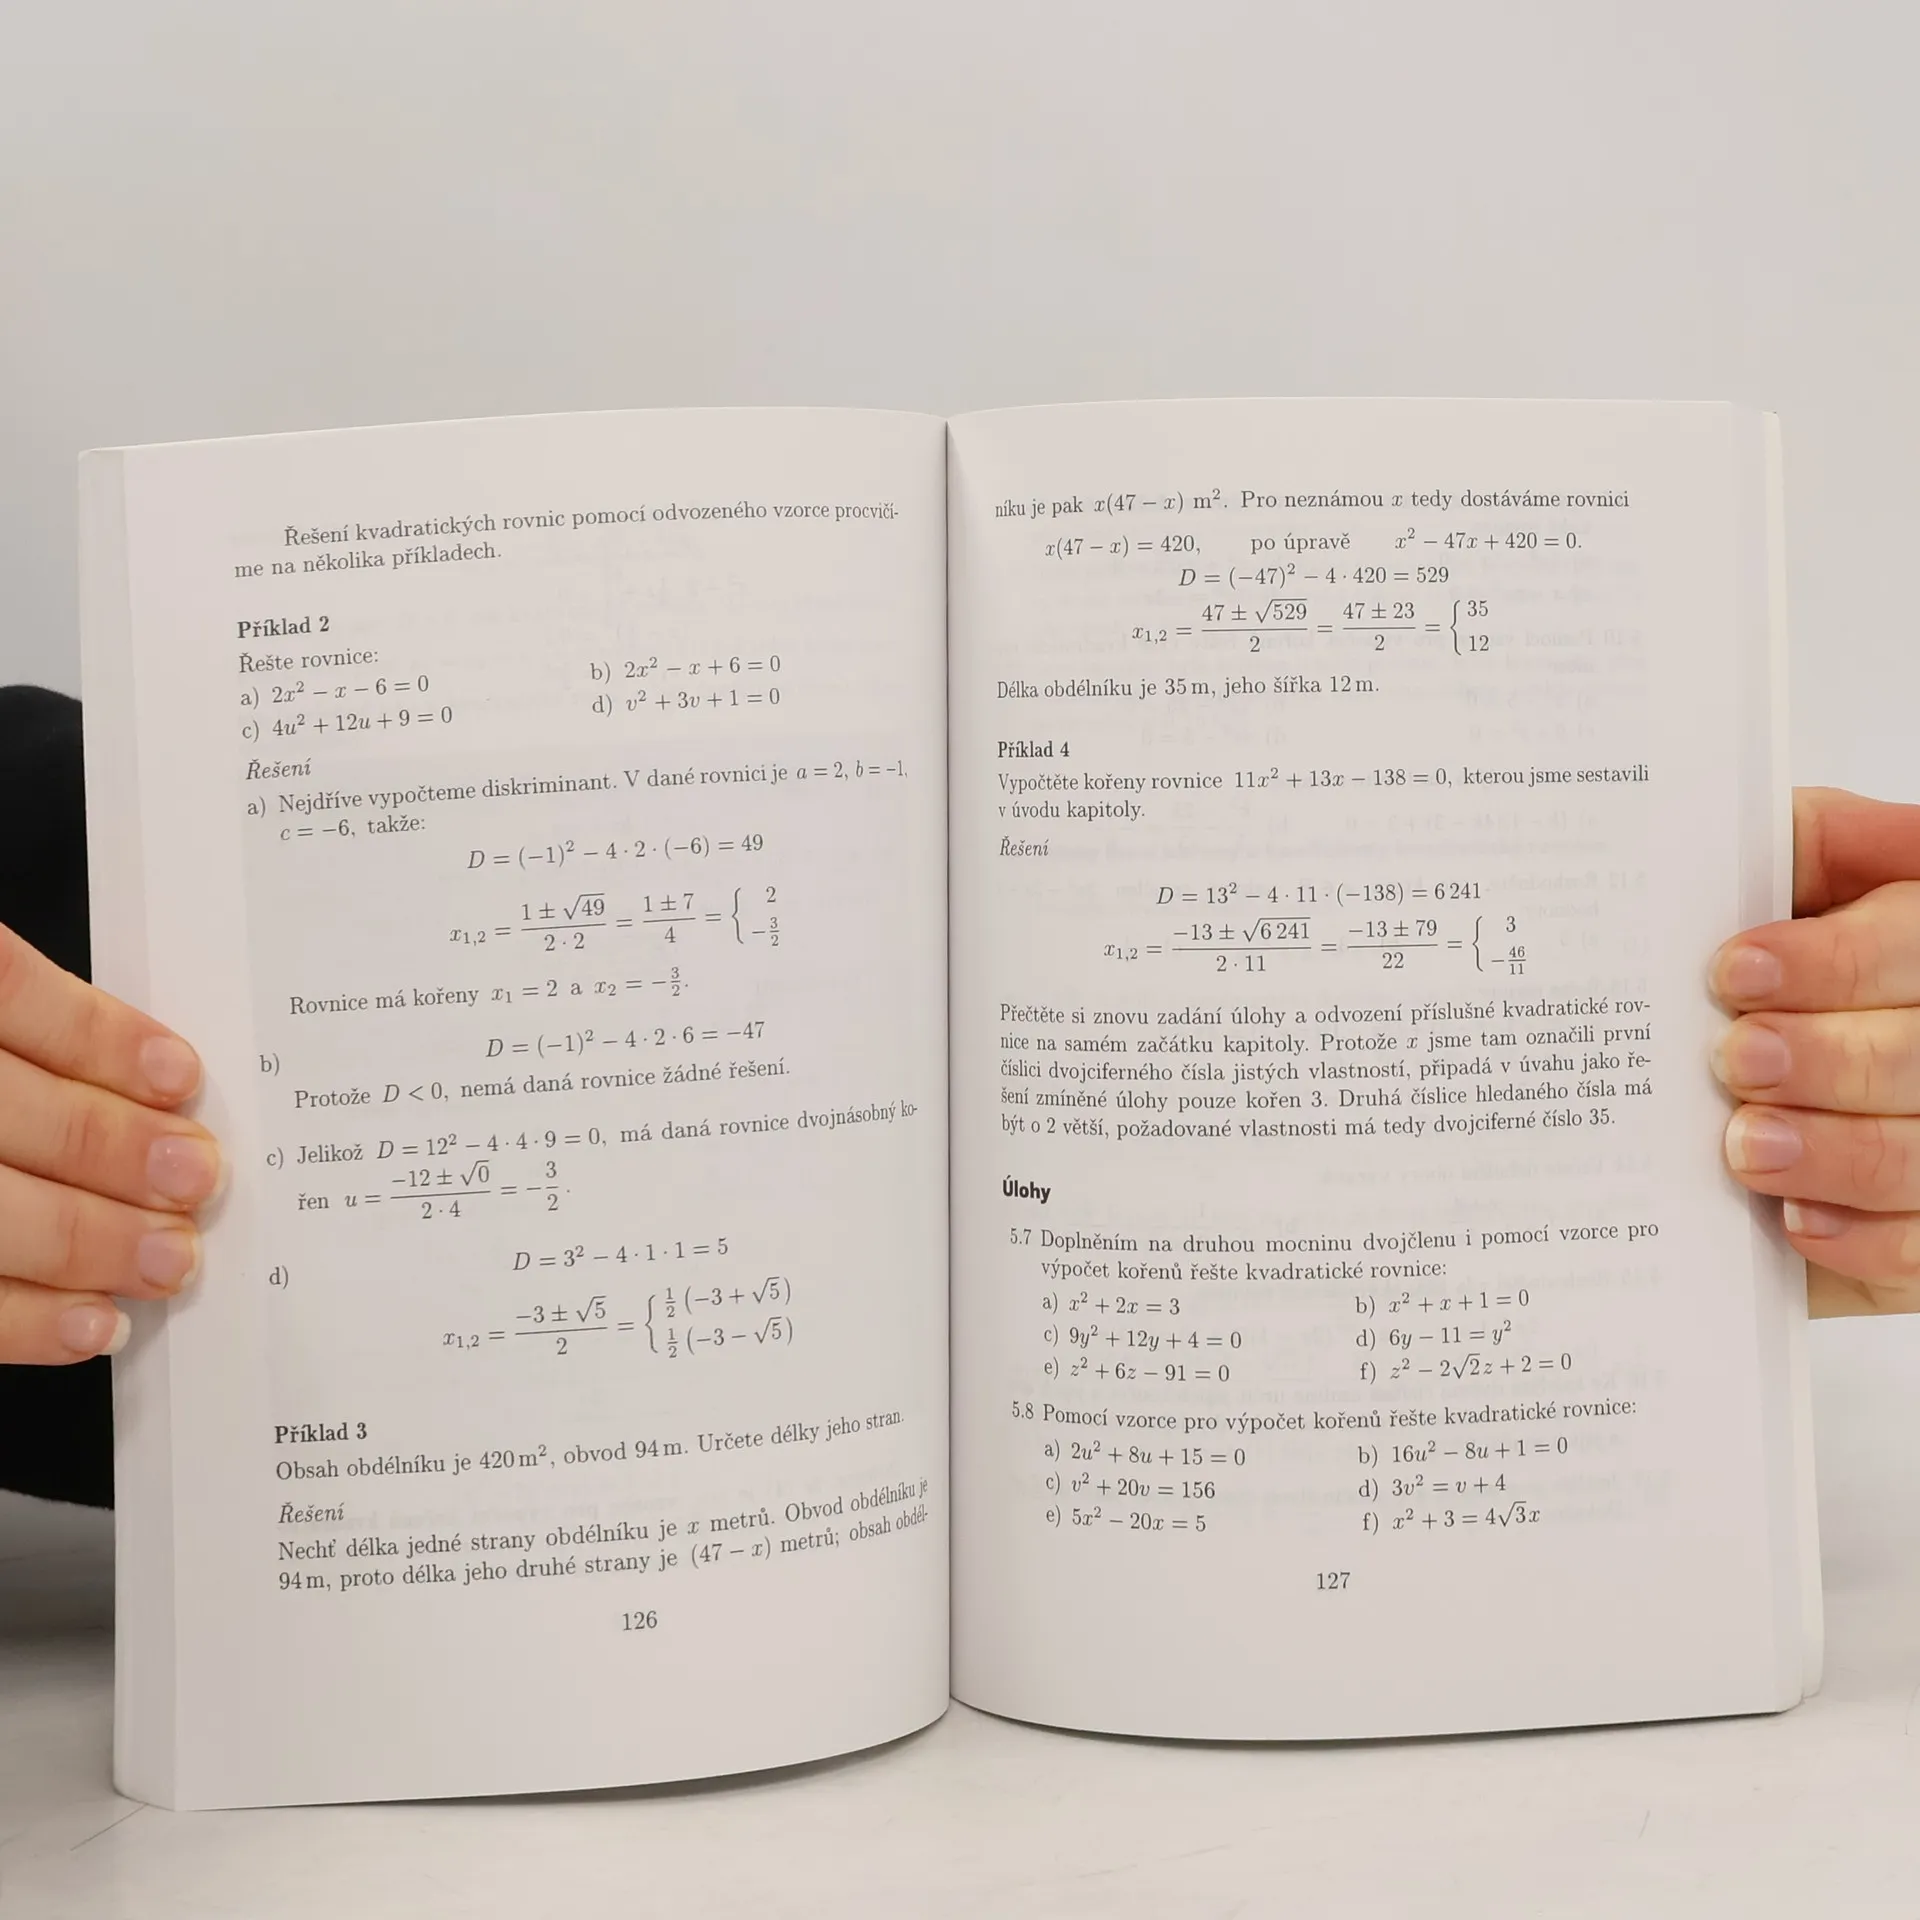 Řešení kvadratických rovnic pomocí odvozeného vzorce procvičí-
me na několika příkladech.
Příklad 2
Řešte rovnice:
a) 2x² − x − 6 = 0 b) 2x² − x + 6 = 0
c) 4u² + 12u + 9 = 0 d) v² + 3v + 1 = 0
Řešení
a) Nejdříve vypočteme diskriminant. V dané rovnici je a = 2, b = −1,
c = −6, takže:
D = (−1)² − 4 · 2 · (−6) = 49
x₁,₂ = (1 ± √49)/(2 · 2) = (1 ± 7)/4 = { 2 −3/2
Rovnice má kořeny x₁ = 2 a x₂ = −3/2.
b) D = (−1)² − 4 · 2 · 6 = −47
Protože D < 0, nemá daná rovnice žádné řešení.
c) Jelikož D = 12² − 4 · 4 · 9 = 0, má daná rovnice dvojnásobný ko-
řen u = (−12 ± √0)/(2 · 4) = −3/2.
d) D = 3² − 4 · 1 · 1 = 5
x₁,₂ = (−3 ± √5)/2 = { 1/2 (−3 + √5) 1/2 (−3 − √5)
Příklad 3
Obsah obdélníku je 420 m², obvod 94 m. Určete délky jeho stran.
Řešení
Nechť délka jedné strany obdélníku je x metrů. Obvod obdélníku je
94 m, proto délka jeho druhé strany je (47 − x) metrů; obsah obdél-
126
níku je pak x(47 − x) m². Pro neznámou x tedy dostáváme rovnici
x(47 − x) = 420, po úpravě x² − 47x + 420 = 0.
D = (−47)² − 4 · 420 = 529
x₁,₂ = (47 ± √529)/2 = (47 ± 23)/2 = { 35 12
Délka obdélníku je 35 m, jeho šířka 12 m.
Příklad 4
Vypočtěte kořeny rovnice 11x² + 13x − 138 = 0, kterou jsme sestavili
v úvodu kapitoly.
Řešení
D = 13² − 4 · 11 · (−138) = 6 241
x₁,₂ = (−13 ± √6 241)/(2 · 11) = (−13 ± 79)/22 = { 3 −46/11
Přečtěte si znovu zadání úlohy a odvození příslušné kvadratické rov-
nice na samém začátku kapitoly. Protože x jsme tam označili první
číslici dvojciferného čísla jistých vlastností, připadá v úvahu jako ře-
šení zmíněné úlohy pouze kořen 3. Druhá číslice hledaného čísla má
být o 2 větší, požadované vlastnosti má tedy dvojciferné číslo 35.
Úlohy
5.7 Doplněním na druhou mocninu dvojčlenu i pomocí vzorce pro
výpočet kořenů řešte kvadratické rovnice:
a) x² + 2x = 3 b) x² + x + 1 = 0
c) 9y² + 12y + 4 = 0 d) 6y − 11 = y²
e) z² + 6z − 91 = 0 f) z² − 2√2 z + 2 = 0
5.8 Pomocí vzorce pro výpočet kořenů řešte kvadratické rovnice:
a) 2u² + 8u + 15 = 0 b) 16u² − 8u + 1 = 0
c) v² + 20v = 156 d) 3v² = v + 4
e) 5x² − 20x = 5 f) x² + 3 = 4√3 x
127